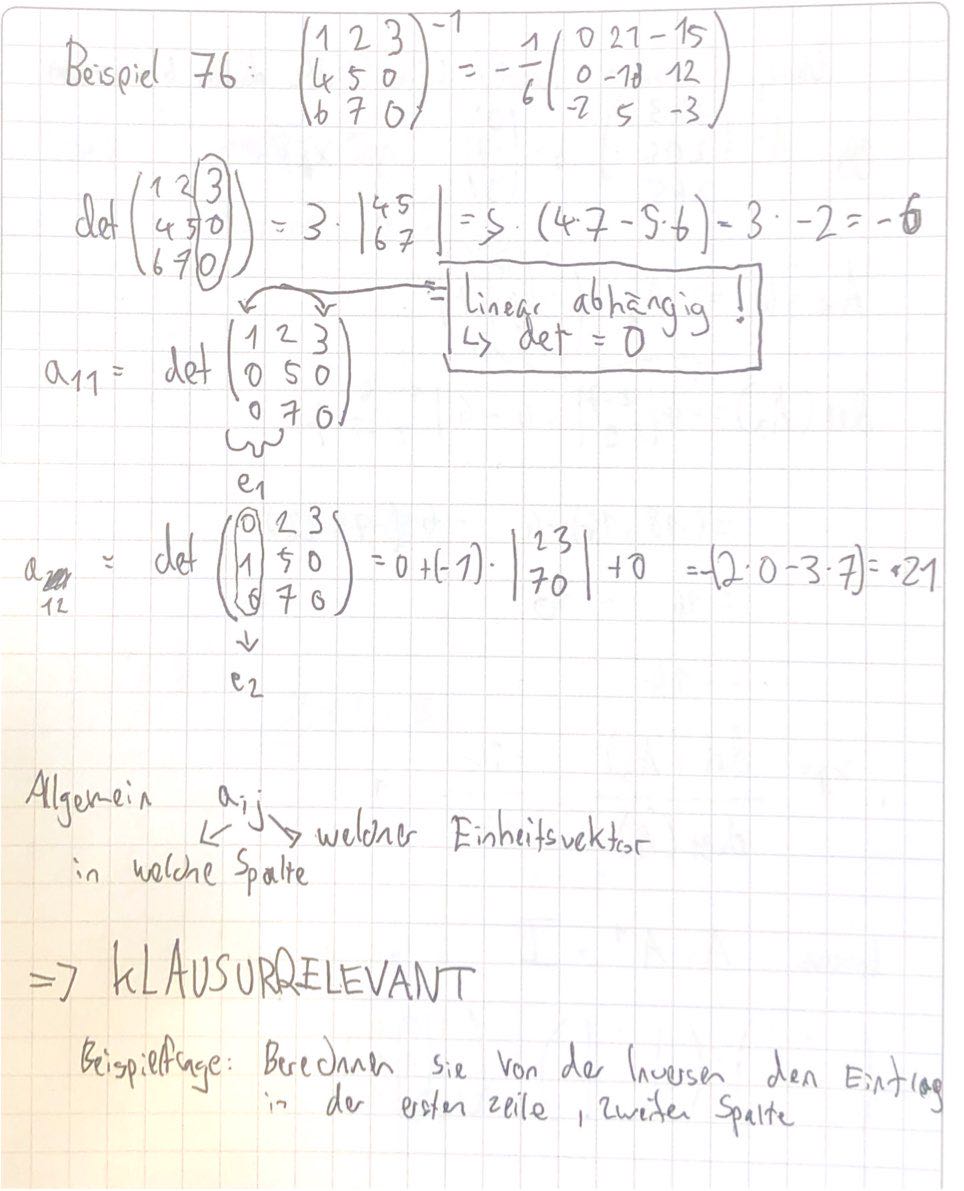 Beispiel 76: (1 2 3; 4 5 0; 6 7 0)^-1 = -1/6 (0 21 -15; 0 -18 12; -2 5 -3)
det (1 2 3; 4 5 0; 6 7 0) = 3 · |4 5; 6 7| = 3 · (4·7 - 5·6) = 3 · -2 = -6
linear abhängig !
↳ det = 0
a11 = det (1 2 3; 0 5 0; 0 7 0)
e1
a12 = det (0 2 3; 1 5 0; 0 7 0) = 0 + (-1) · |2 3; 7 0| + 0 = -(2·0 - 3·7) = +21
e2
Allgemein aij
welcher Einheitsvektor
in welche Spalte
=> KLAUSURRELEVANT
Beispielfrage: Berechnen sie von der Inversen den Eintrag
in der ersten zeile, zweiten Spalte